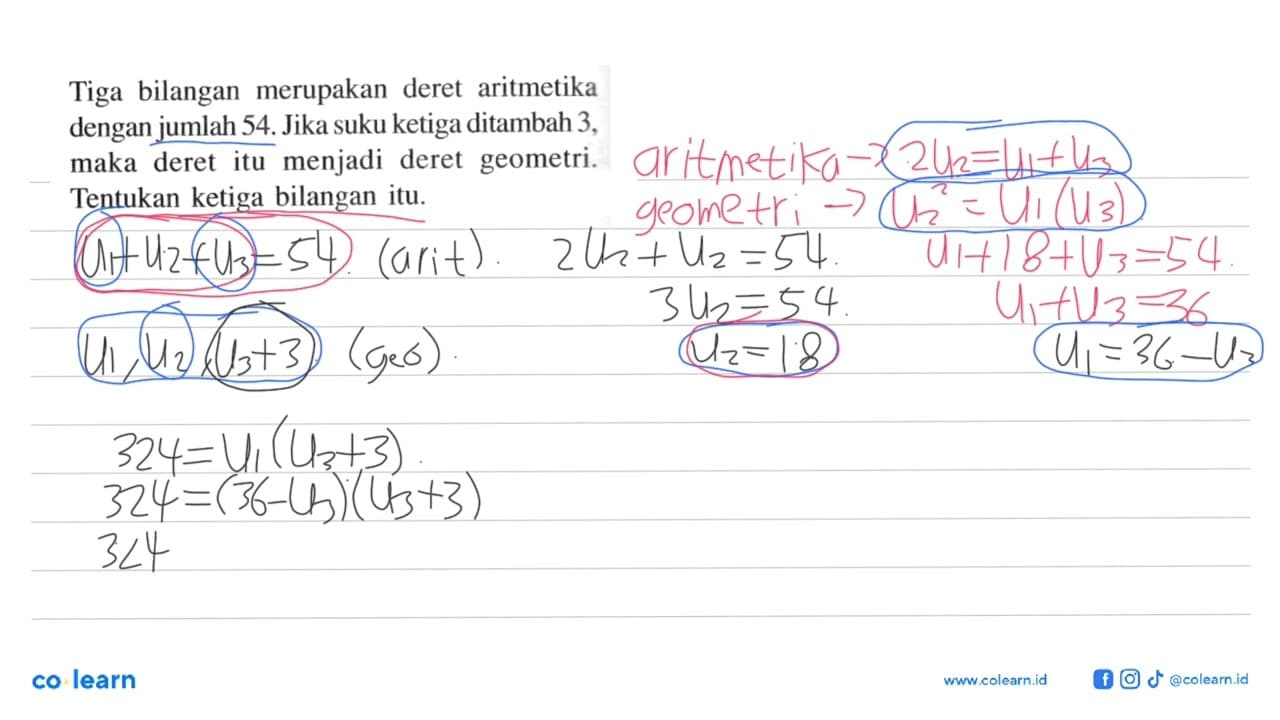 Tiga bilangan merupakan deret aritmetika
dengan jumlah 54. Jika suku ketiga ditambah 3,
maka deret itu menjadi deret geometri.
Tentukan ketiga bilangan itu.
aritmetika → 2U₂=U₁+U₃
geometri → U₂²=U₁(U₃)
U₁+U₂+U₃=54 (arit).
2U₂+U₂=54.
U₁+18+U₃=54.
3U₂=54.
U₁+U₃=36
U₁,U₂,U₃+3 (geo).
U₂=18
U₁=36-U₃
324=U₁(U₃+3).
324=(36-U₃)(U₃+3)
324
co learn
www.colearn.id
@colearn.id